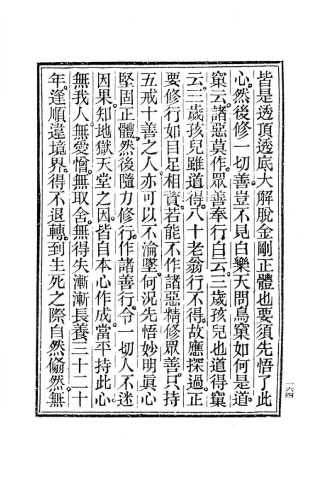 皆是透頂透底大解脫金剛正體也要須先悟了此
心然後修一切善豈不見白樂天問鳥窠如何是道
窠云諸惡莫作眾善奉行白云三歲孩兒也道得窠
云三歲孩兒雖道得八十老翁行不得故應探過正
要修行如目足相資若能不作諸惡精修眾善只持
五戒十善之人亦可以不淪墜何況先悟妙明真心
堅固正體然後隨力修行作諸善行令一切人不迷
因果知地獄天堂之因皆自本心作成當平持此心
無我人無愛憎無取舍無得失漸漸長養三十二十
年逢順違境界得不退轉到生死之際自然翛然無
一六四